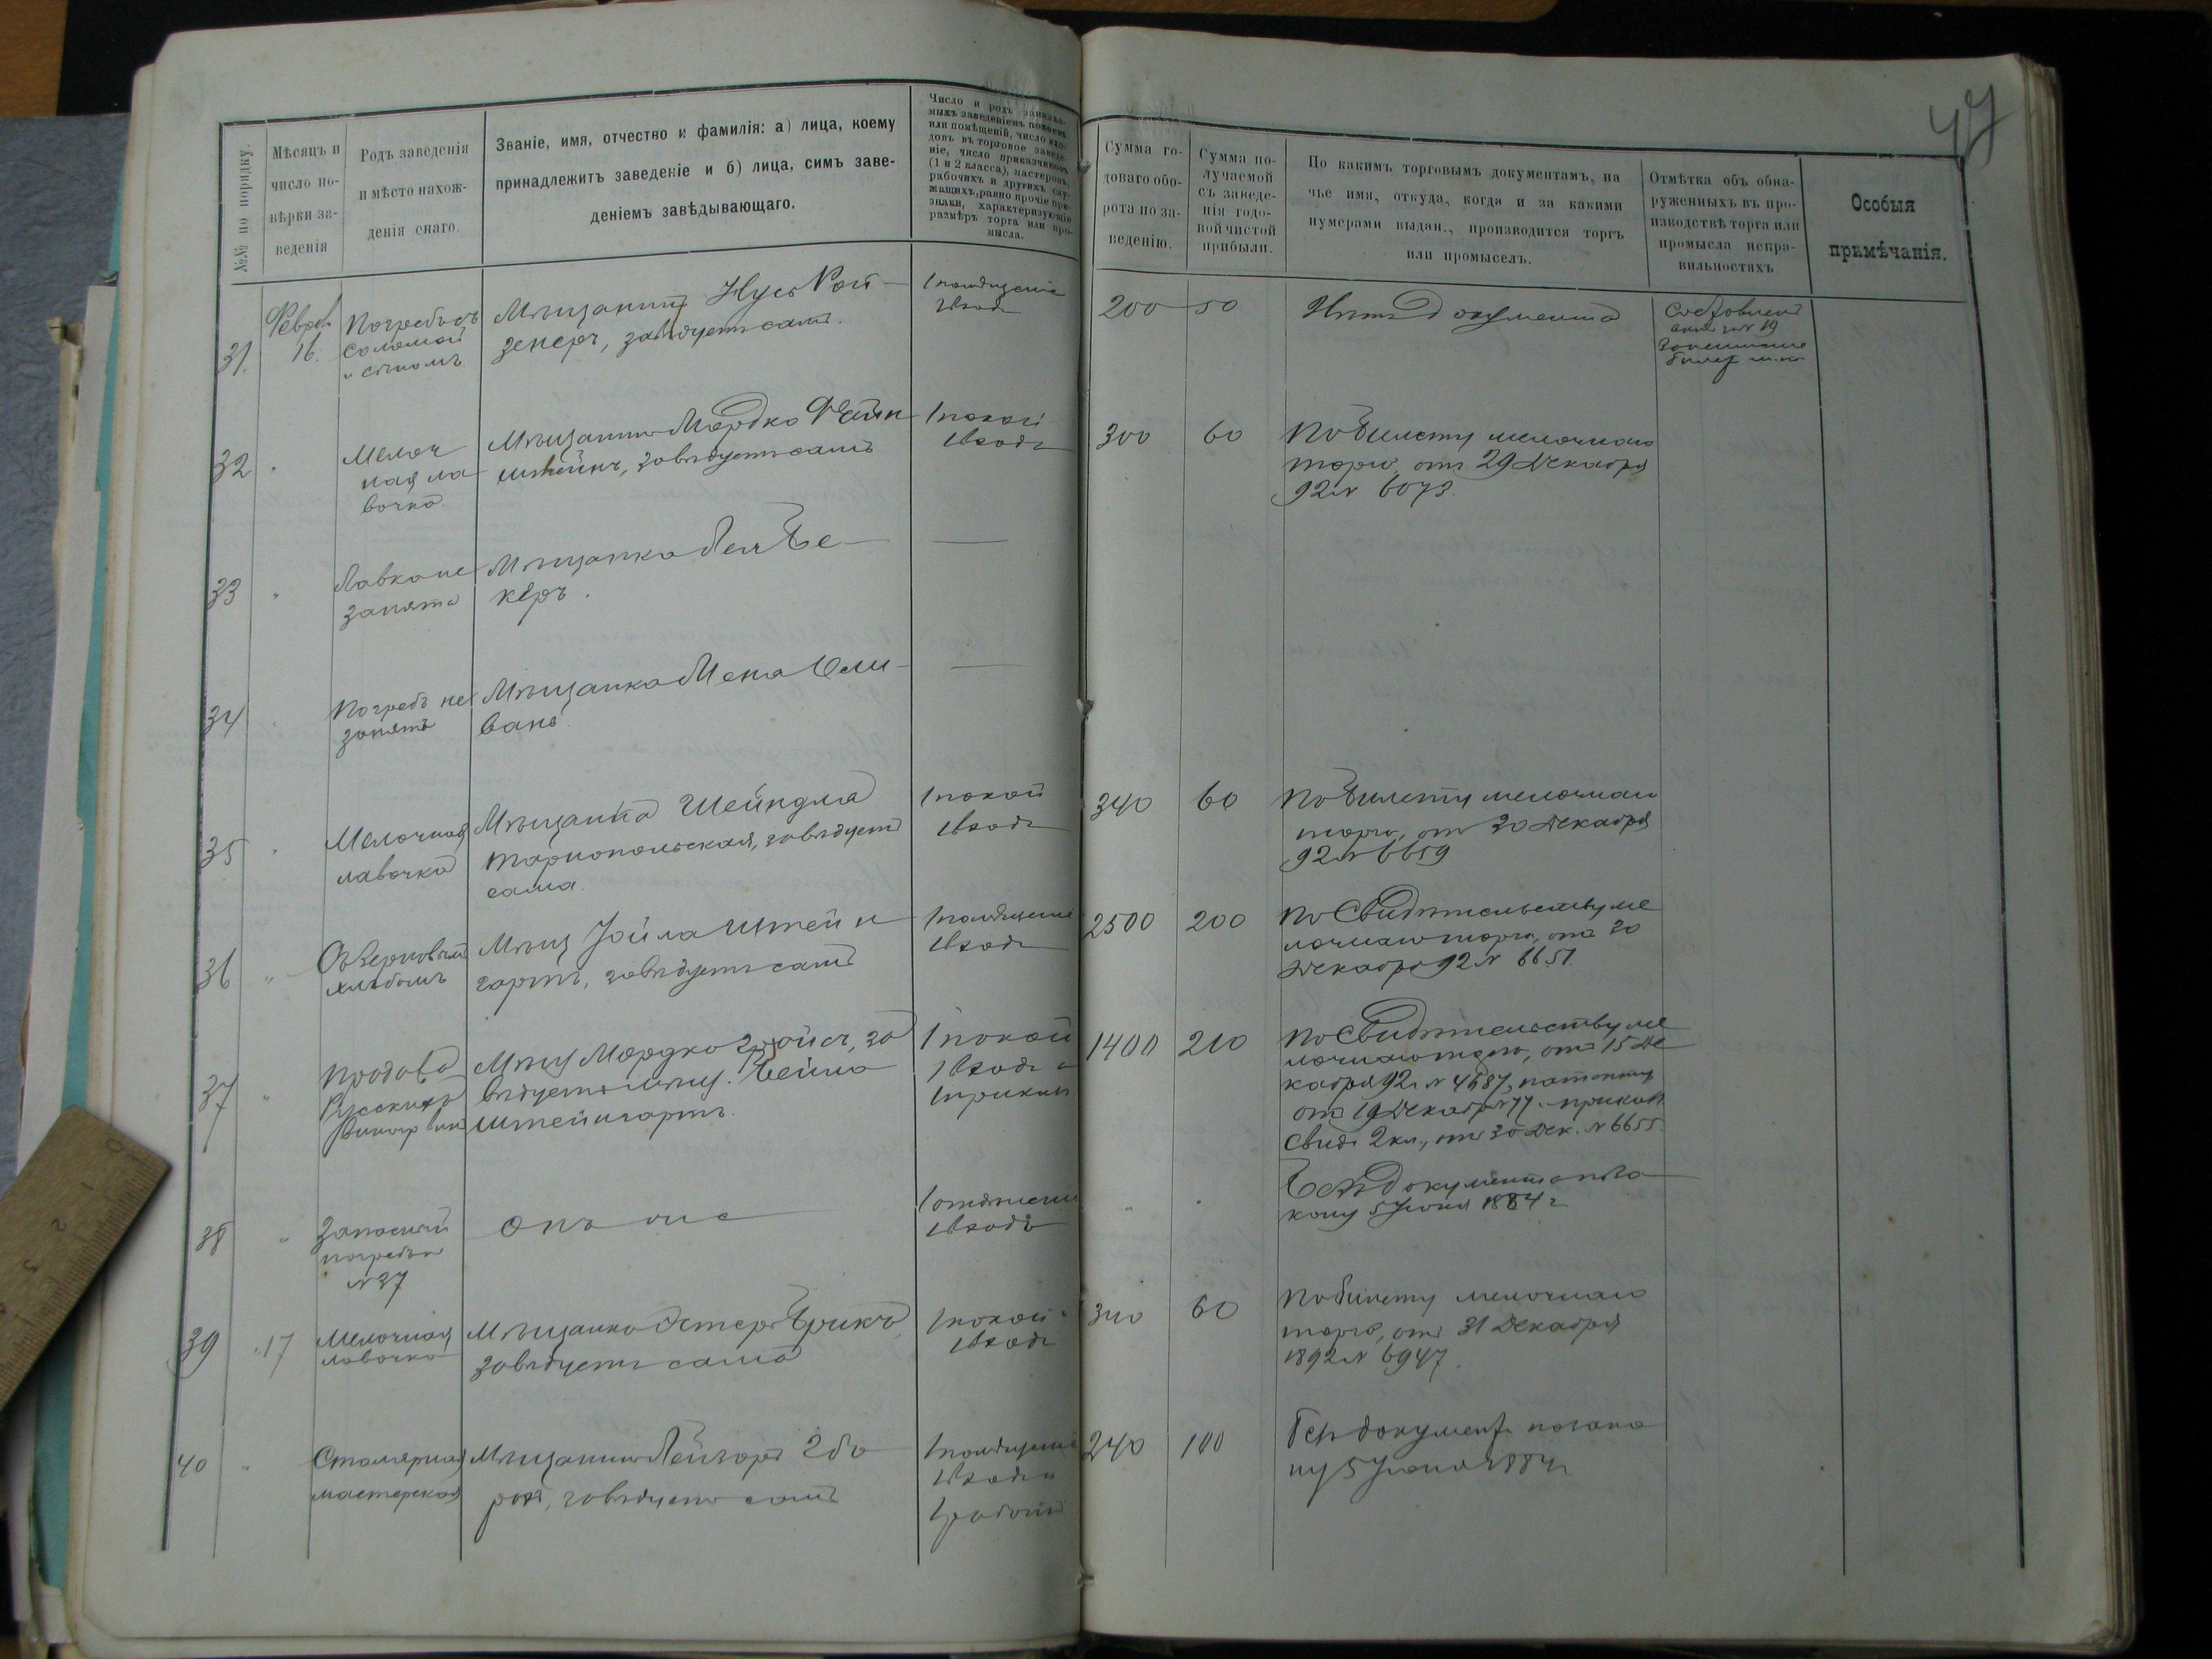 47
№№ по порядку.
Мѣсяцъ и
число по-
вѣрки за-
веденія
Родъ заведенія
и мѣсто нахож-
денія онаго.
Званіе, имя, отчество и фамилія: а) лица, коему
принадлежитъ заведеніе и б) лица, симъ заве-
деніемъ завѣдывающаго.
Число и родъ занимае-
мыхъ заведеніемъ покоевъ
или помѣщеній, число вхо-
довъ въ торговое заведе-
ніе, число приказчиковъ
(1 и 2 класса), мастеровъ,
рабочихъ и другихъ слу-
жащихъ, равно прочіе при-
знаки, характеризующіе
размѣръ торга или про-
мысла.
Сумма го-
доваго обо-
рота по за-
веденію.
Сумма по-
лучаемой
съ заведе-
нія годо-
вой чистой
прибыли.
По какимъ торговымъ документамъ, на
чье имя, откуда, когда и за какими
нумерами выдан., производится торгъ
или промыселъ.
Отмѣтка объ обна-
руженныхъ въ про-
изводствѣ торга или
промысла непра-
вильностяхъ
Особыя
примѣчанія.
31.
Феврал
16.
Погребъ съ
соломой
и сѣномъ
Мѣщанинъ Нусъ Рой-
зенеръ, завѣдуетъ самъ.
1 помѣщеніе
1 входъ
200
50
Нѣтъ документа
Составленъ
актъ за № 19
32
"
Мелоч
ная ла
вочка.
Мѣщанинъ Мордко Фейн
штейнъ, завѣдуетъ самъ
1 покой
1 входъ
300
60
По билету мелочнаго
торга, отъ 29 Декабря
92 № 6073.
33
"
Лавка не
занята
Мѣщанка Лея Бе-
керъ.
34
"
Погребъ не
занятъ
Мѣщанка Мена Сели-
ванъ
35
"
Мелочная
лавочка
Мѣщанка Шейндля
Тарнопольская, завѣдуетъ
сама.
1 покой
1 входъ
340
60
По билету мелочнаго
торга, отъ 30 Декабря
92 № 6659
36
"
Съ зерновымъ
хлѣбомъ
Мѣщ Іойла Штейн
гартъ, завѣдуетъ самъ
1 помѣщеніе
1 входъ
2500
200
По Свидѣтельству ме
лочнаго торга, отъ 30
Декабря 92 № 6651.
37
"
Продажа
Русскихъ
виногр винъ
Мѣщ Мордко Гройсъ, за
вѣдуетъ мѣщ. Бейла
Штейнгартъ.
1 покой
1 входъ и
1 прикащ
1400
210
По Свидѣтельству ме
лочнаго торга, отъ 15 Де
кабря 92 г № 4687, патенту
отъ 19 Декабря № 77 и приказ.
Свид. 2 кл., отъ 30 Дек. № 6655.
38
"
Запасный
погребъ
№ 37
Онъ же
1 отдѣленіе
1 входъ
"
"
Безъ документа по за
кону 5 Іюня 1884 г
39
"17
Мелочная
лавочка
Мѣщанка Эстеръ Брикъ,
завѣдуетъ сама
1 покой и
1 входъ
340
60
По билету мелочнаго
торга, отъ 31 Декабря
1892 № 6947.
40
"
Столярная
мастерская
Мѣщанинъ Лейзоръ
завѣдуетъ самъ
1 помѣщеніе
1 входъ и
1 рабочій
240
100
Безъ документа по зако
ну 5 Іюня 1884 г
0
1
2
3